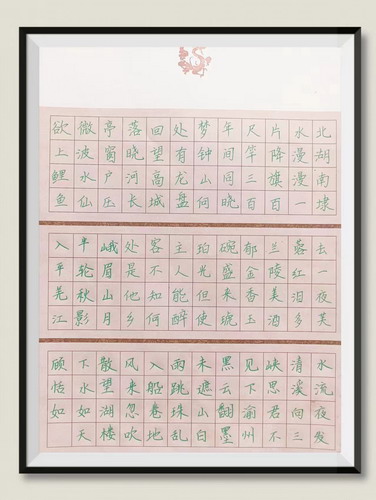 北湖南埭
水漫漫一
片降旗百
尺竿三百
年间同晓
梦钟山何
处有龙盘
回望高城
落晓河长
亭窗户压
微波水仙
欲上鲤鱼
去一夜芙
蓉红泪多
兰陵美酒
郁金香玉
碗盛来琥
珀光但使
主人能醉
客不知何
处是他乡
峨眉山月
半轮秋影
入平羌江
水流夜发
清溪向三
峡思君不
见下渝州
黑云翻墨
未遮山白
雨跳珠乱
入船卷地
风来忽吹
散望湖楼
下水如天
顾恬如